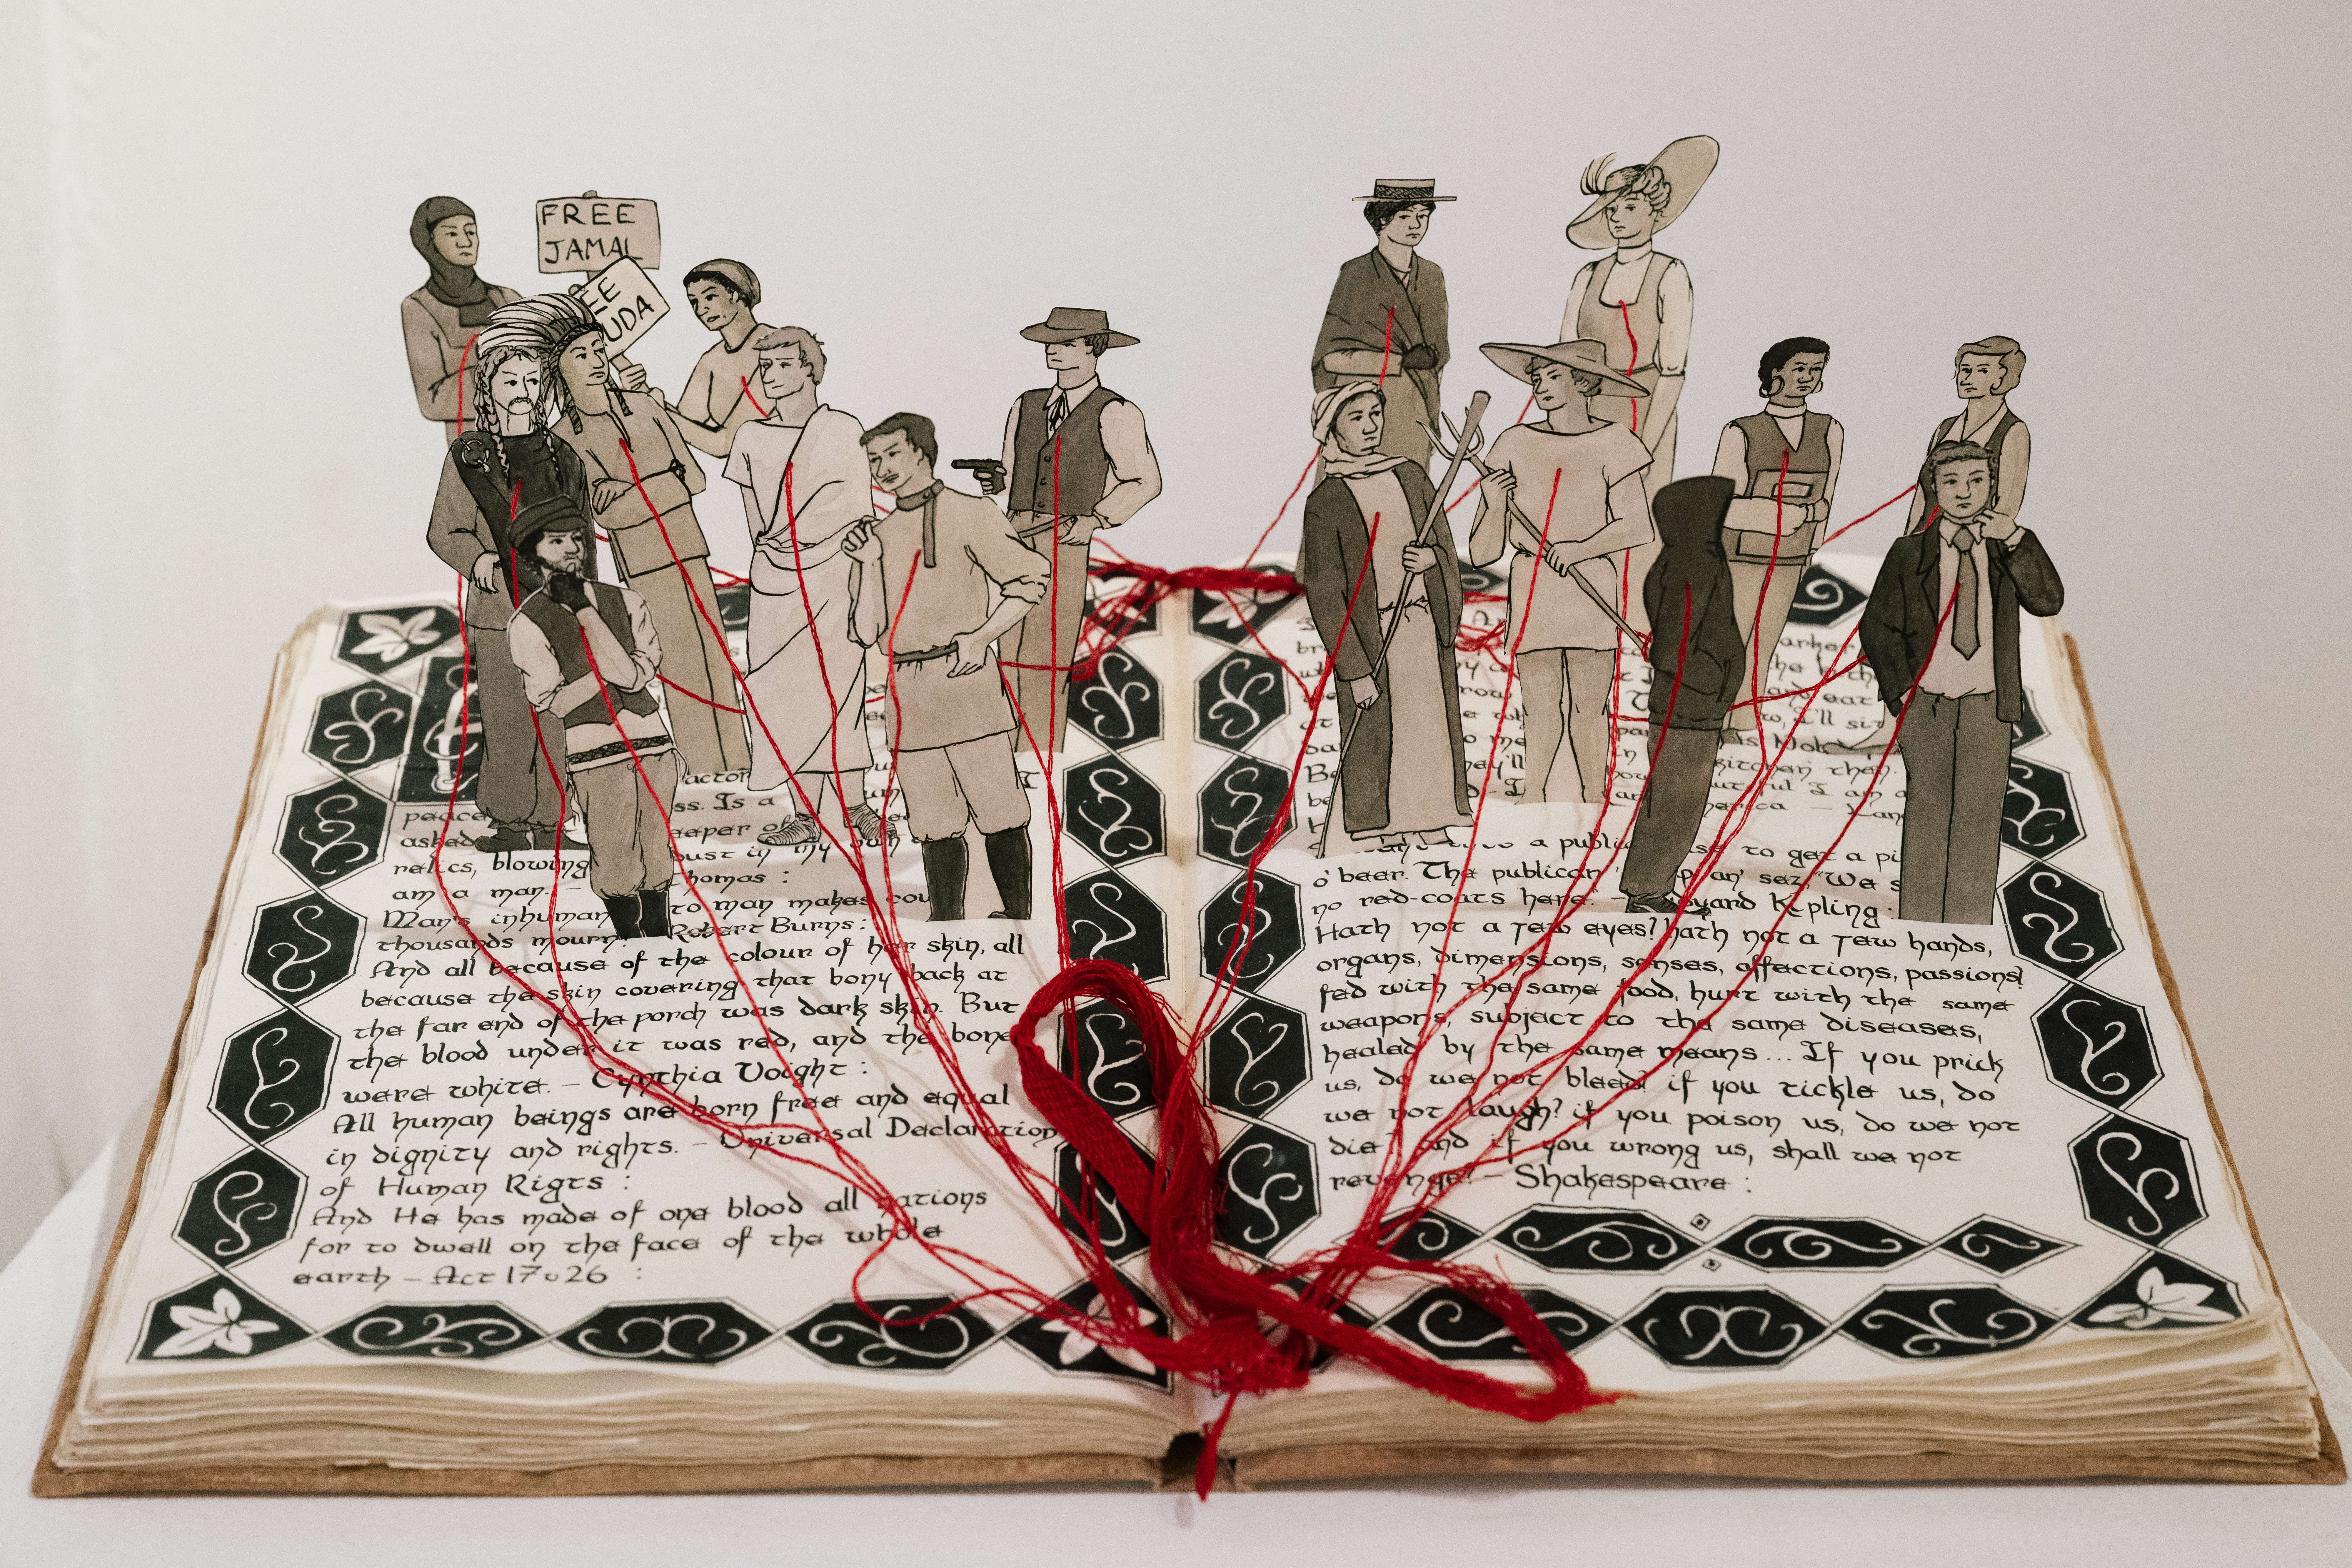 FREE
JAMAL
EE
UDA
actor
ss. Is a
peace
eeper of
asked
dust in my own
relics, blowing
homas :
am a man. –
Man's inhuman to man makes cou
thousands mourn. Robert Burns :
And all because of the colour of her skin, all
because the skin covering that bony back at
the far end of the porch was dark skin. But
the blood under it was red, and the bone
were white. – Cynthia Voight :
All human beings are born free and equal
in dignity and rights. – Universal Declaration
of Human Rigts :
And He has made of one blood all nations
for to dwell on the face of the whole
earth – Act 17 v 26 :
arker
the k
and eat
I'll sit
kitchen then.
I am a
erica
a public se to get a pi
o' beer. The publican 'e up an' sez, "We s
no red-coats here." – yard Kipling :
Hath not a Jew eyes? hath not a Jew hands,
organs, dimensions, senses, affections, passions?
fed with the same food, hurt with the same
weapons, subject to the same diseases,
healed by the same means... If you prick
us, do we not bleed? if you tickle us, do
we not laugh? if you poison us, do we not
die? and if you wrong us, shall we not
revenge? – Shakespeare :